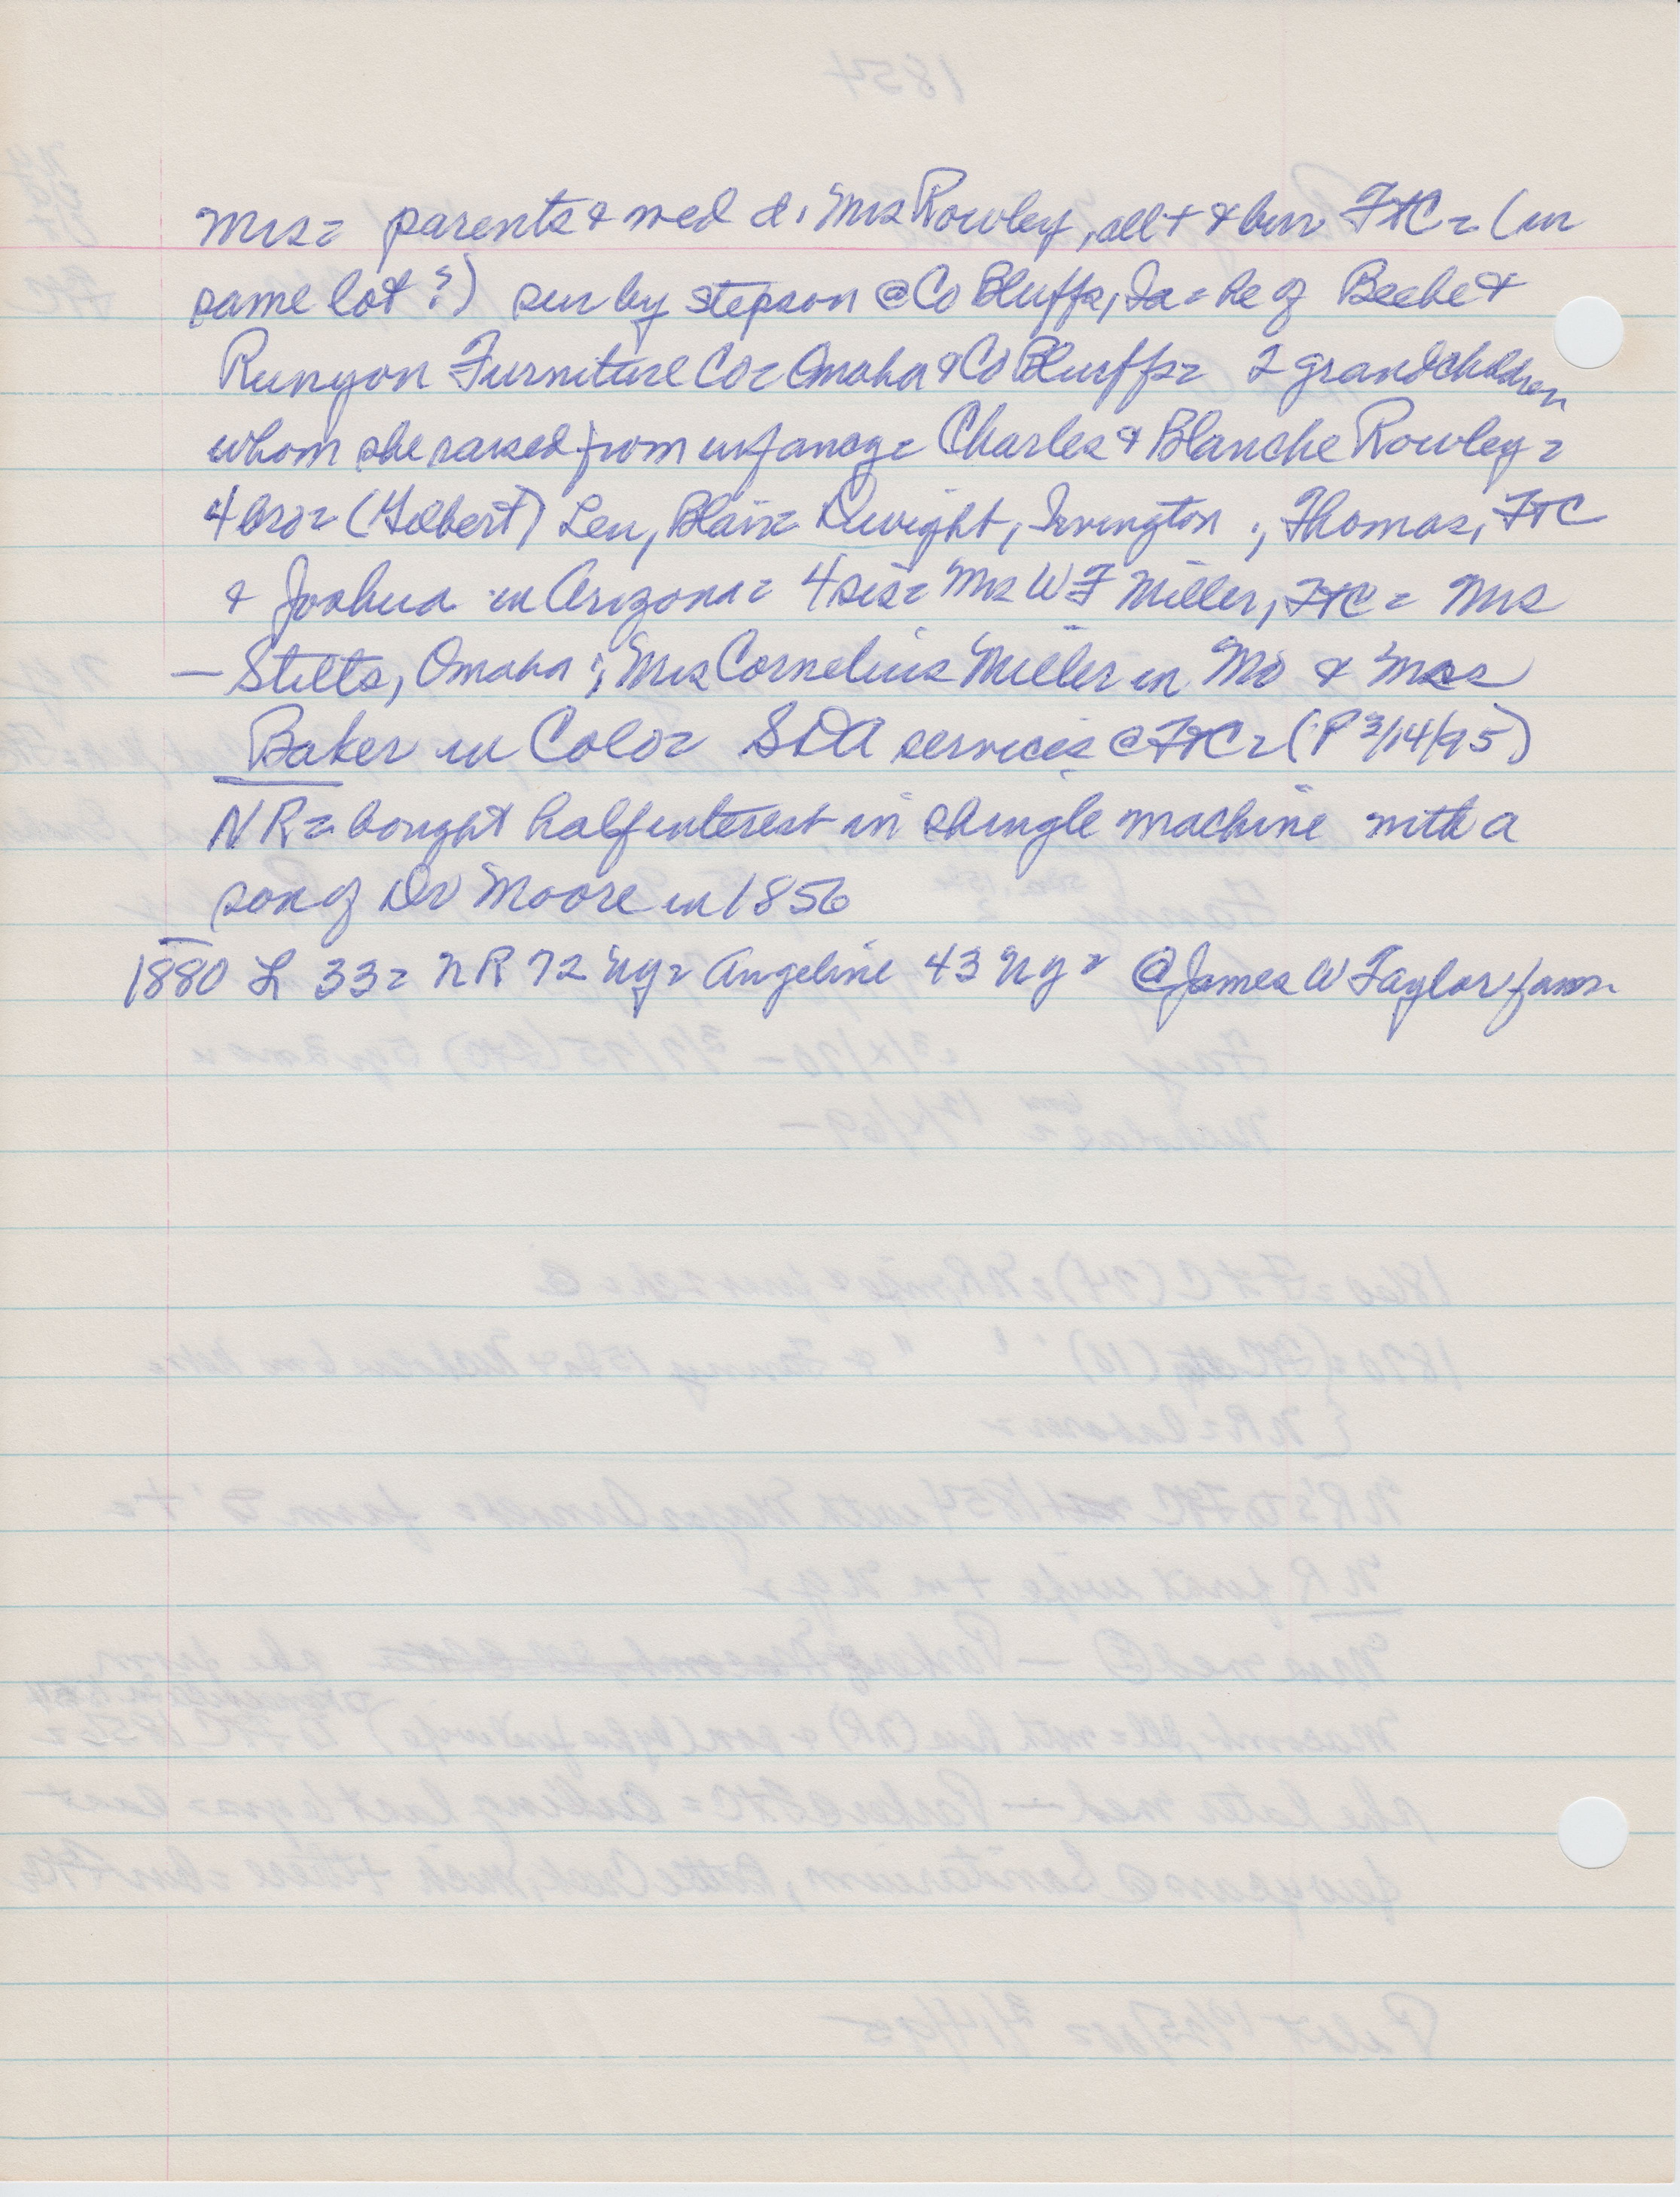 Mrs= parents & wed d. Mrs Rowley, all + & bur FtC = (in
same lot?) sur by stepson @ Co Bluffs, Ia = he of Beebe &
Runyon Furniture Co = Omaha & Co Bluffs = 2 grandchildren
whom she raised from infancy = Charles & Blanche Rowley =
4 bro = (Gilbert) Leu, Blair = Dwight, Irvington ; Thomas, FtC
& Joshua in Arizona = 4 sis = Mrs W F Miller, FtC = Mrs
— Stilts, Omaha ; Mrs Cornelius Miller in Mo & Mrs
Baker in Colo = SDA services @ FtC = (P 3/14/95)
NR = bought half interest in shingle machine with a
son of Dr Moore in 1856
1880 L 33 = NR 72 NY = Angeline 43 NY = @ James W Taylor farm